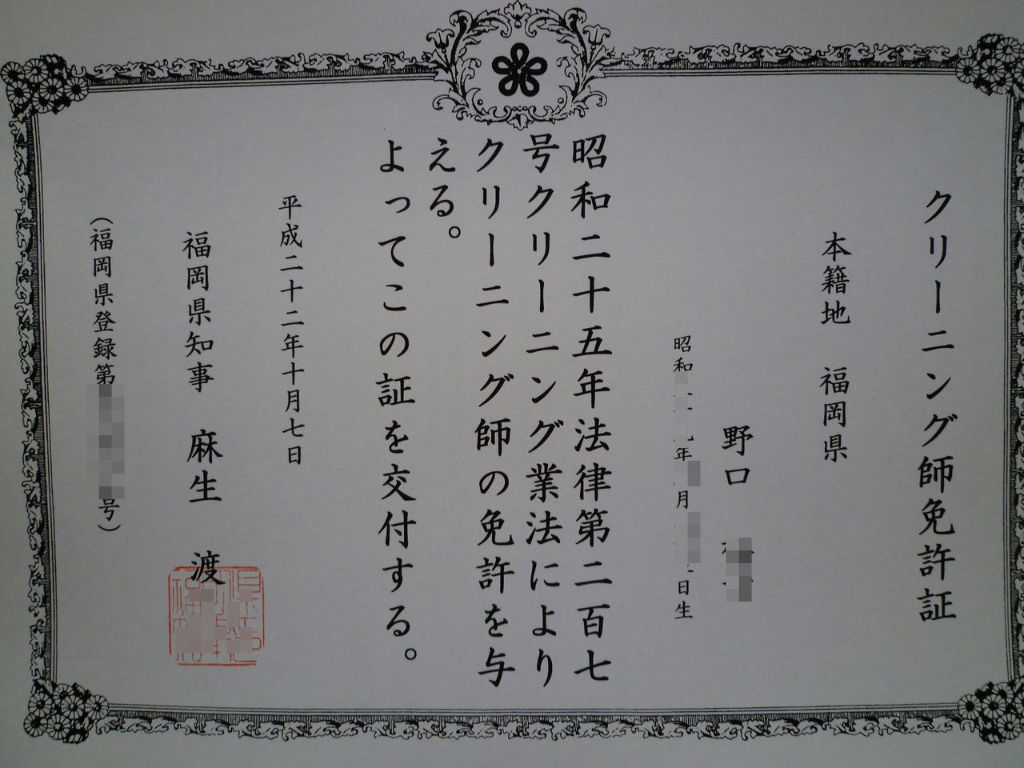 クリーニング師免許証
本籍地 福岡県
野口
昭和 年 月 日生
昭和二十五年法律第二百七
号クリーニング業法により
クリーニング師の免許を与
える。
よってこの証を交付する。
平成二十二年十月七日
福岡県知事 麻生 渡
（福岡県登録第 号）